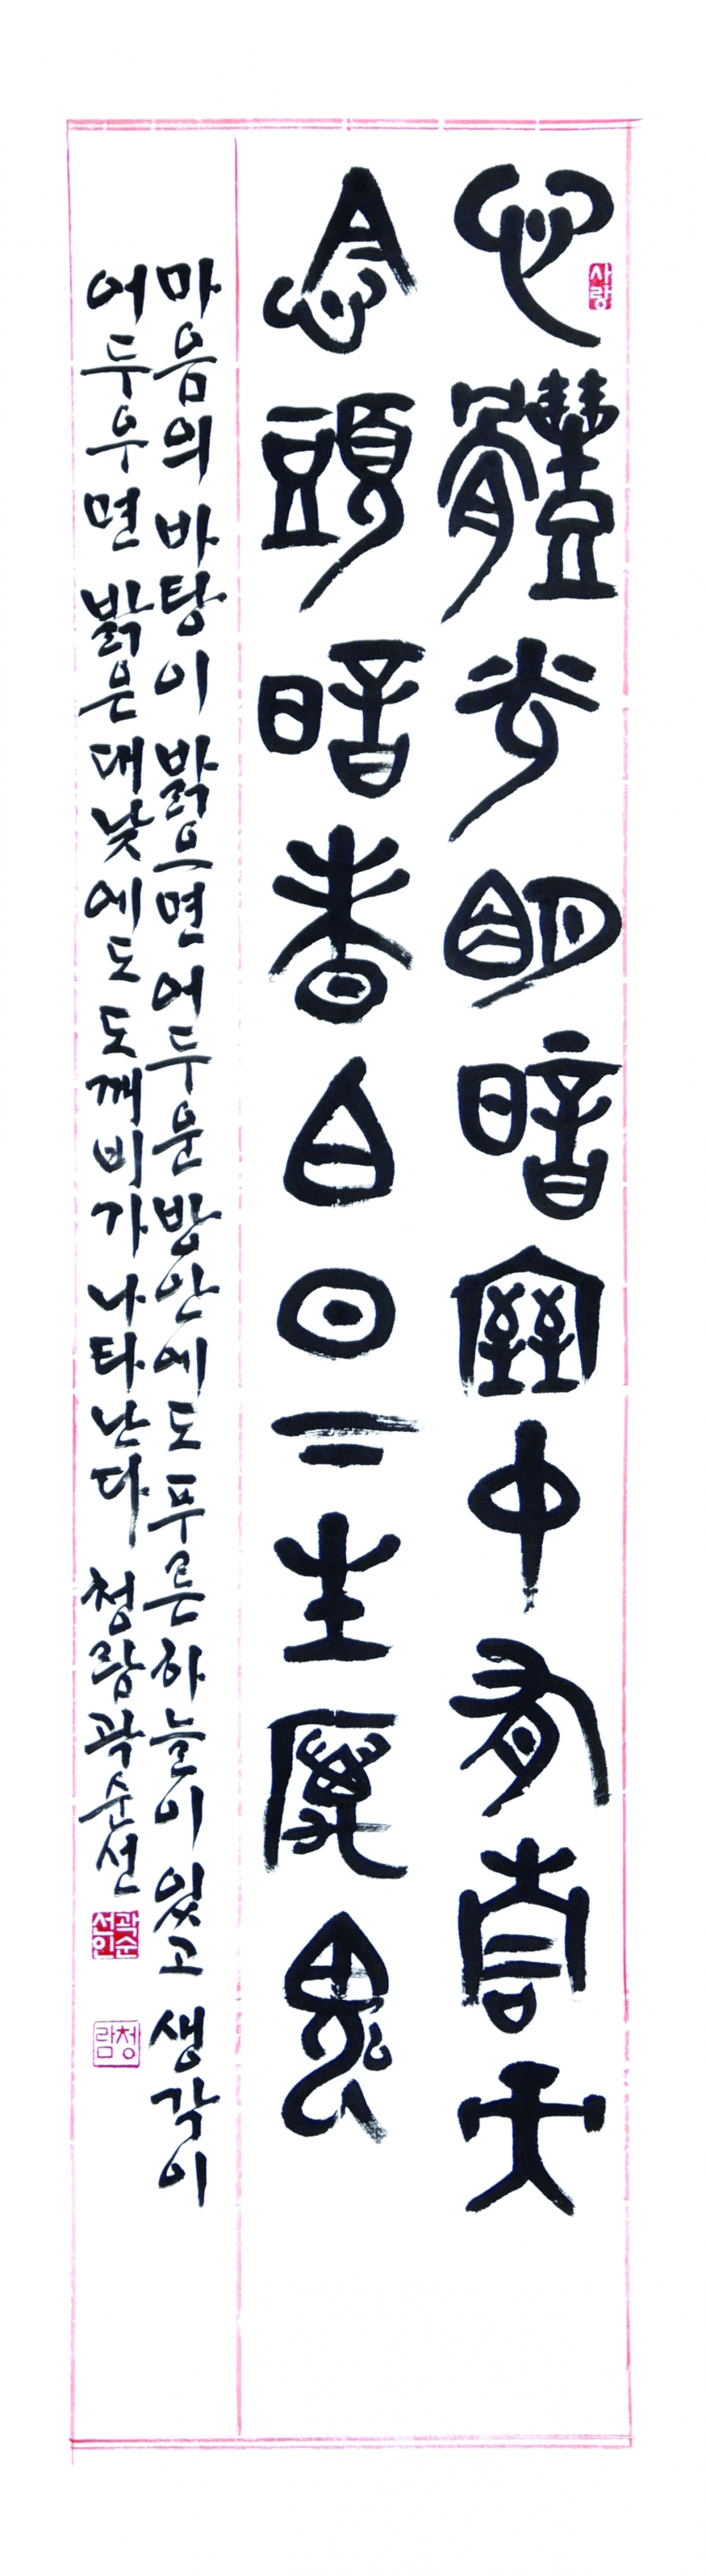 사랑
心體光明暗室中有青天
念頭暗昧白日下生厲鬼
마음의 바탕이 밝으면 어두운 방안에도 푸른 하늘이 있고 생각이
어두우면 밝은 대낮에도 도깨비가 나타난다 청람 곽순선
곽순선인
청람